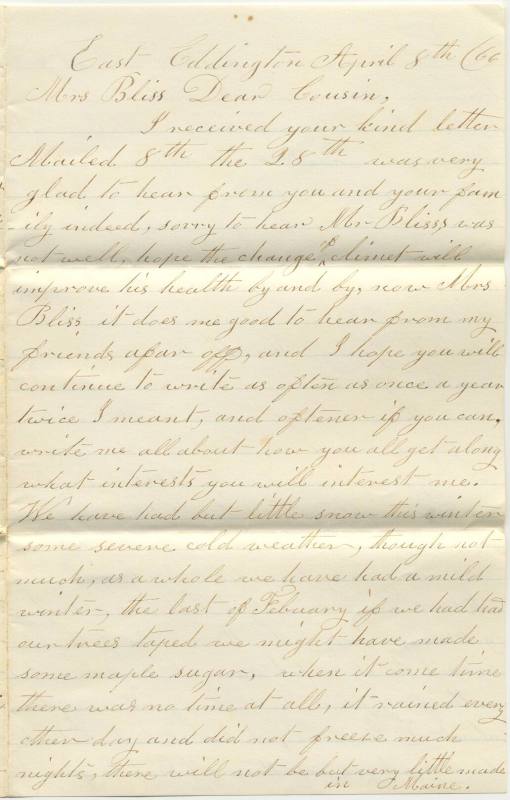 East Eddington April 8th (66
Mrs Bliss Dear Cousin,
I received your kind letter
Mailed 8th the 28th was very
glad to hear from you and your fam
ily indeed, sorry to hear Mr Blisss was
not well, hope the change of climet will
improve his health by and by, now Mrs
Bliss it does me good to hear from my
friends afar off, and I hope you will
continue to write as often as once a year
twice I meant, and oftener if you can,
write me all about how you all get along
what interests you will interest me.
We have had but little snow this winter
some severe cold weather, though not
much, as a whole we have had a mild
winter, the last of Febuary if we had had
our trees taped we might have made
some maple sugar, when it come time
there was no time at all, it rained every
other day and did not freeze much
nights, there will not be but very little made
in Maine.